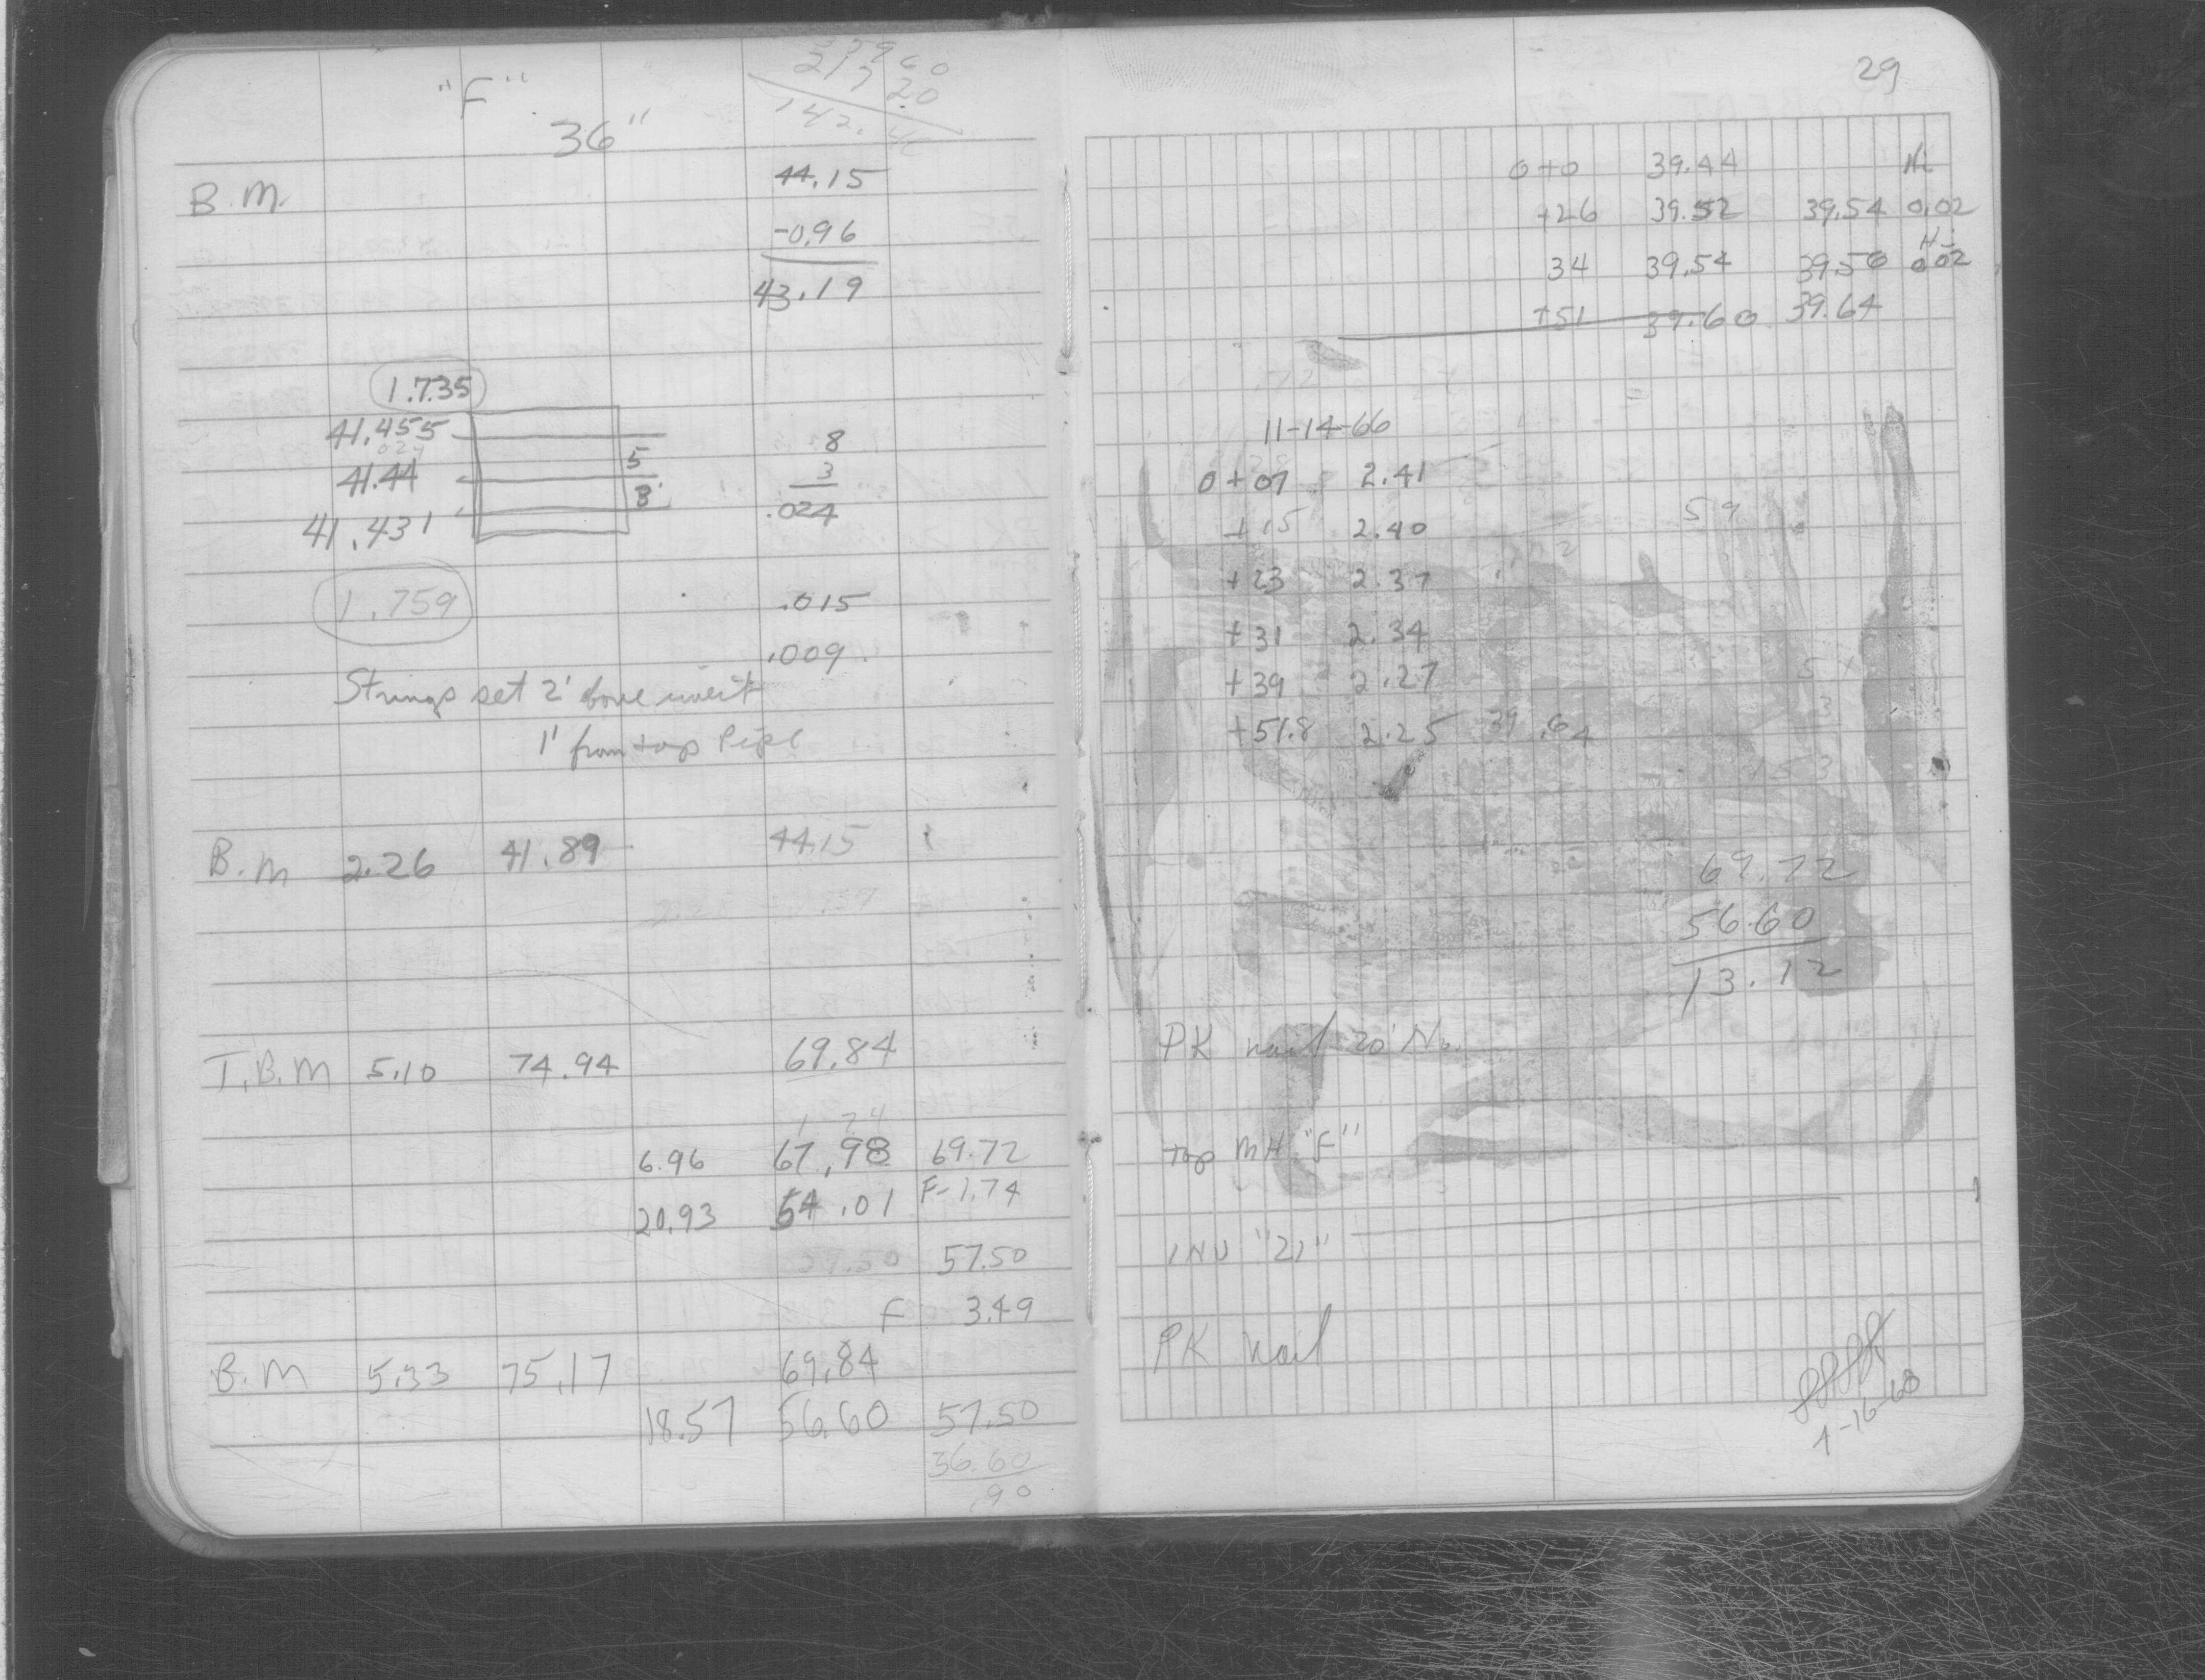 "F"
36"
B.M.
44.15
-0.96
43.19
1.735
41.455
41.44
41.431
5
3
8
3
.024
1.759
.015
.009
Strings set 2' above invert
1' from top Pipe
B.M 2.26 41.89 44.15
T.B.M 5.10 74.94 69.84
1.74
6.96 67.98 69.72
20.93 54.01 F-1.74
57.50 57.50
F 3.49
B.M 5.33 75.17 69.84
18.57 56.60 57.50
56.60
.90
29
0+0 39.44 Hi
+26 39.52 39.54 0.02
Hi
34 39.54 39.56 0.02
+51 39.60 39.64
11-14-66
0+07 2.41
+15 2.40
+23 2.37
+31 2.34
+39 2.27
+51.8 2.25 39.64
59
153
69.72
56.60
13.12
PK nail 20' No.
Top MH "F"
INV "21"
PK nail
4-16-68